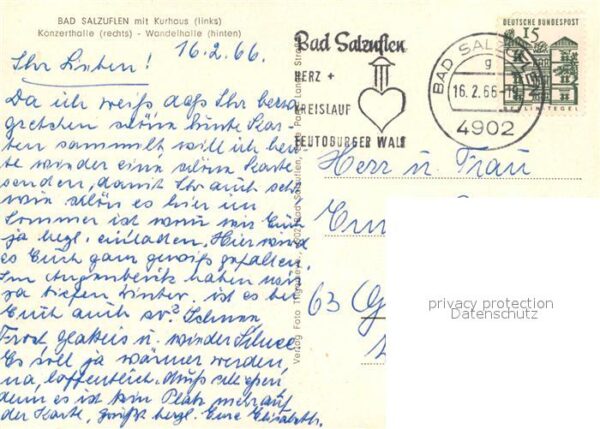 BAD SALZUFLEN mit Kurhaus (links)
Konzerthalle (rechts) - Wandelhalle (hinten)
16.2.66.
Ihr Lieben!
Da ich weiß daß Ihr
gretchen schöne bunte Kar-
ten sammelt will ich heu-
te wieder eine schöne Karte
senden, damit Ihr auch seht
wie schön es hier im
Sommer ist wenn wir Euch
ja hezl. einladen. Hier wird
es Euch ganz gewiß gefallen.
Im Augenblick haben wir
ja tiefen Winter. ist es bei
Euch auch so? Schnee
Frost Glatteis u. wieder Schnee
Es soll ja wärmer werden,
na, hoffentlich. Muß schließen
denn es ist kein Platz mehr auf
der Karte, grüßt hezl. Eure Elisabeth.
Bad Salzuflen
HERZ +
KREISLAUF
TEUTOBURGER WALD
BAD SALZUFLEN
g
16.2.66-19
4902
DEUTSCHE BUNDESPOST
15
BERLIN TEGEL
Herr u. Frau
63
privacy protection
Datenschutz
Verlag Foto
Bad Salzuflen,